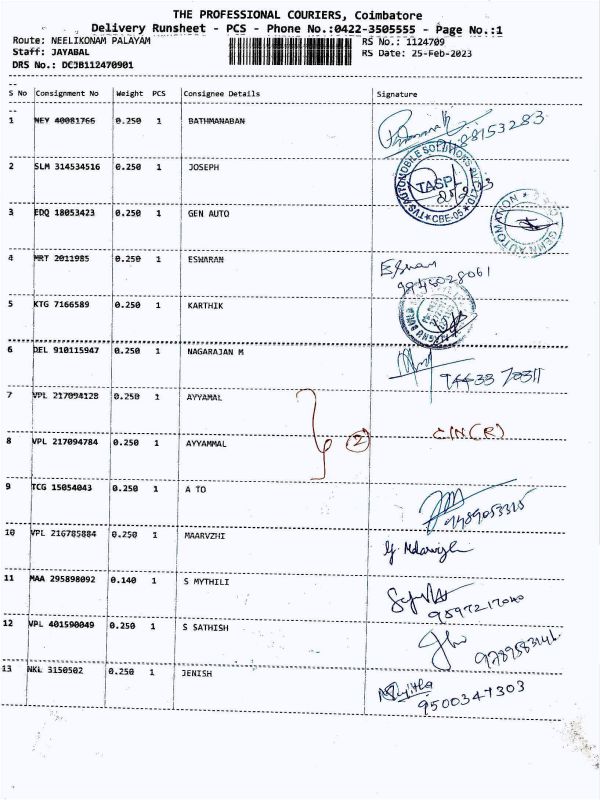 THE PROFESSIONAL COURIERS, Coimbatore
Delivery Runsheet - PCS - Phone No.:0422-3505555 - Page No.:1
Route: NEELIKONAM PALAYAM RS No.: 1124709
Staff: JAYABAL RS Date: 25-Feb-2023
DRS No.: DCJB112470901
S No Consignment No Weight PCS Consignee Details Signature
1 NEY 40081766 0.250 1 BATHMANABAN
2 SLM 314534516 0.250 1 JOSEPH
TVS AUTOMOBILE SOLUTIONS
TASPL
CBE-05
3 EDQ 18053423 0.250 1 GEN AUTO
4 MRT 2011985 0.250 1 ESWARAN
5 KTG 7166589 0.250 1 KARTHIK
6 DEL 910115947 0.250 1 NAGARAJAN M
94433 70311
7 VPL 217094128 0.250 1 AYYAMAL
2
8 VPL 217094784 0.250 1 AYYAMMAL
9 TCG 15054043 0.250 1 A TO
10 VPL 216785884 0.250 1 MAARVZHI
11 MAA 295898092 0.140 1 S MYTHILI
12 VPL 401590049 0.250 1 S SATHISH
13 NKL 3150502 0.250 1 JENISH
9500347303